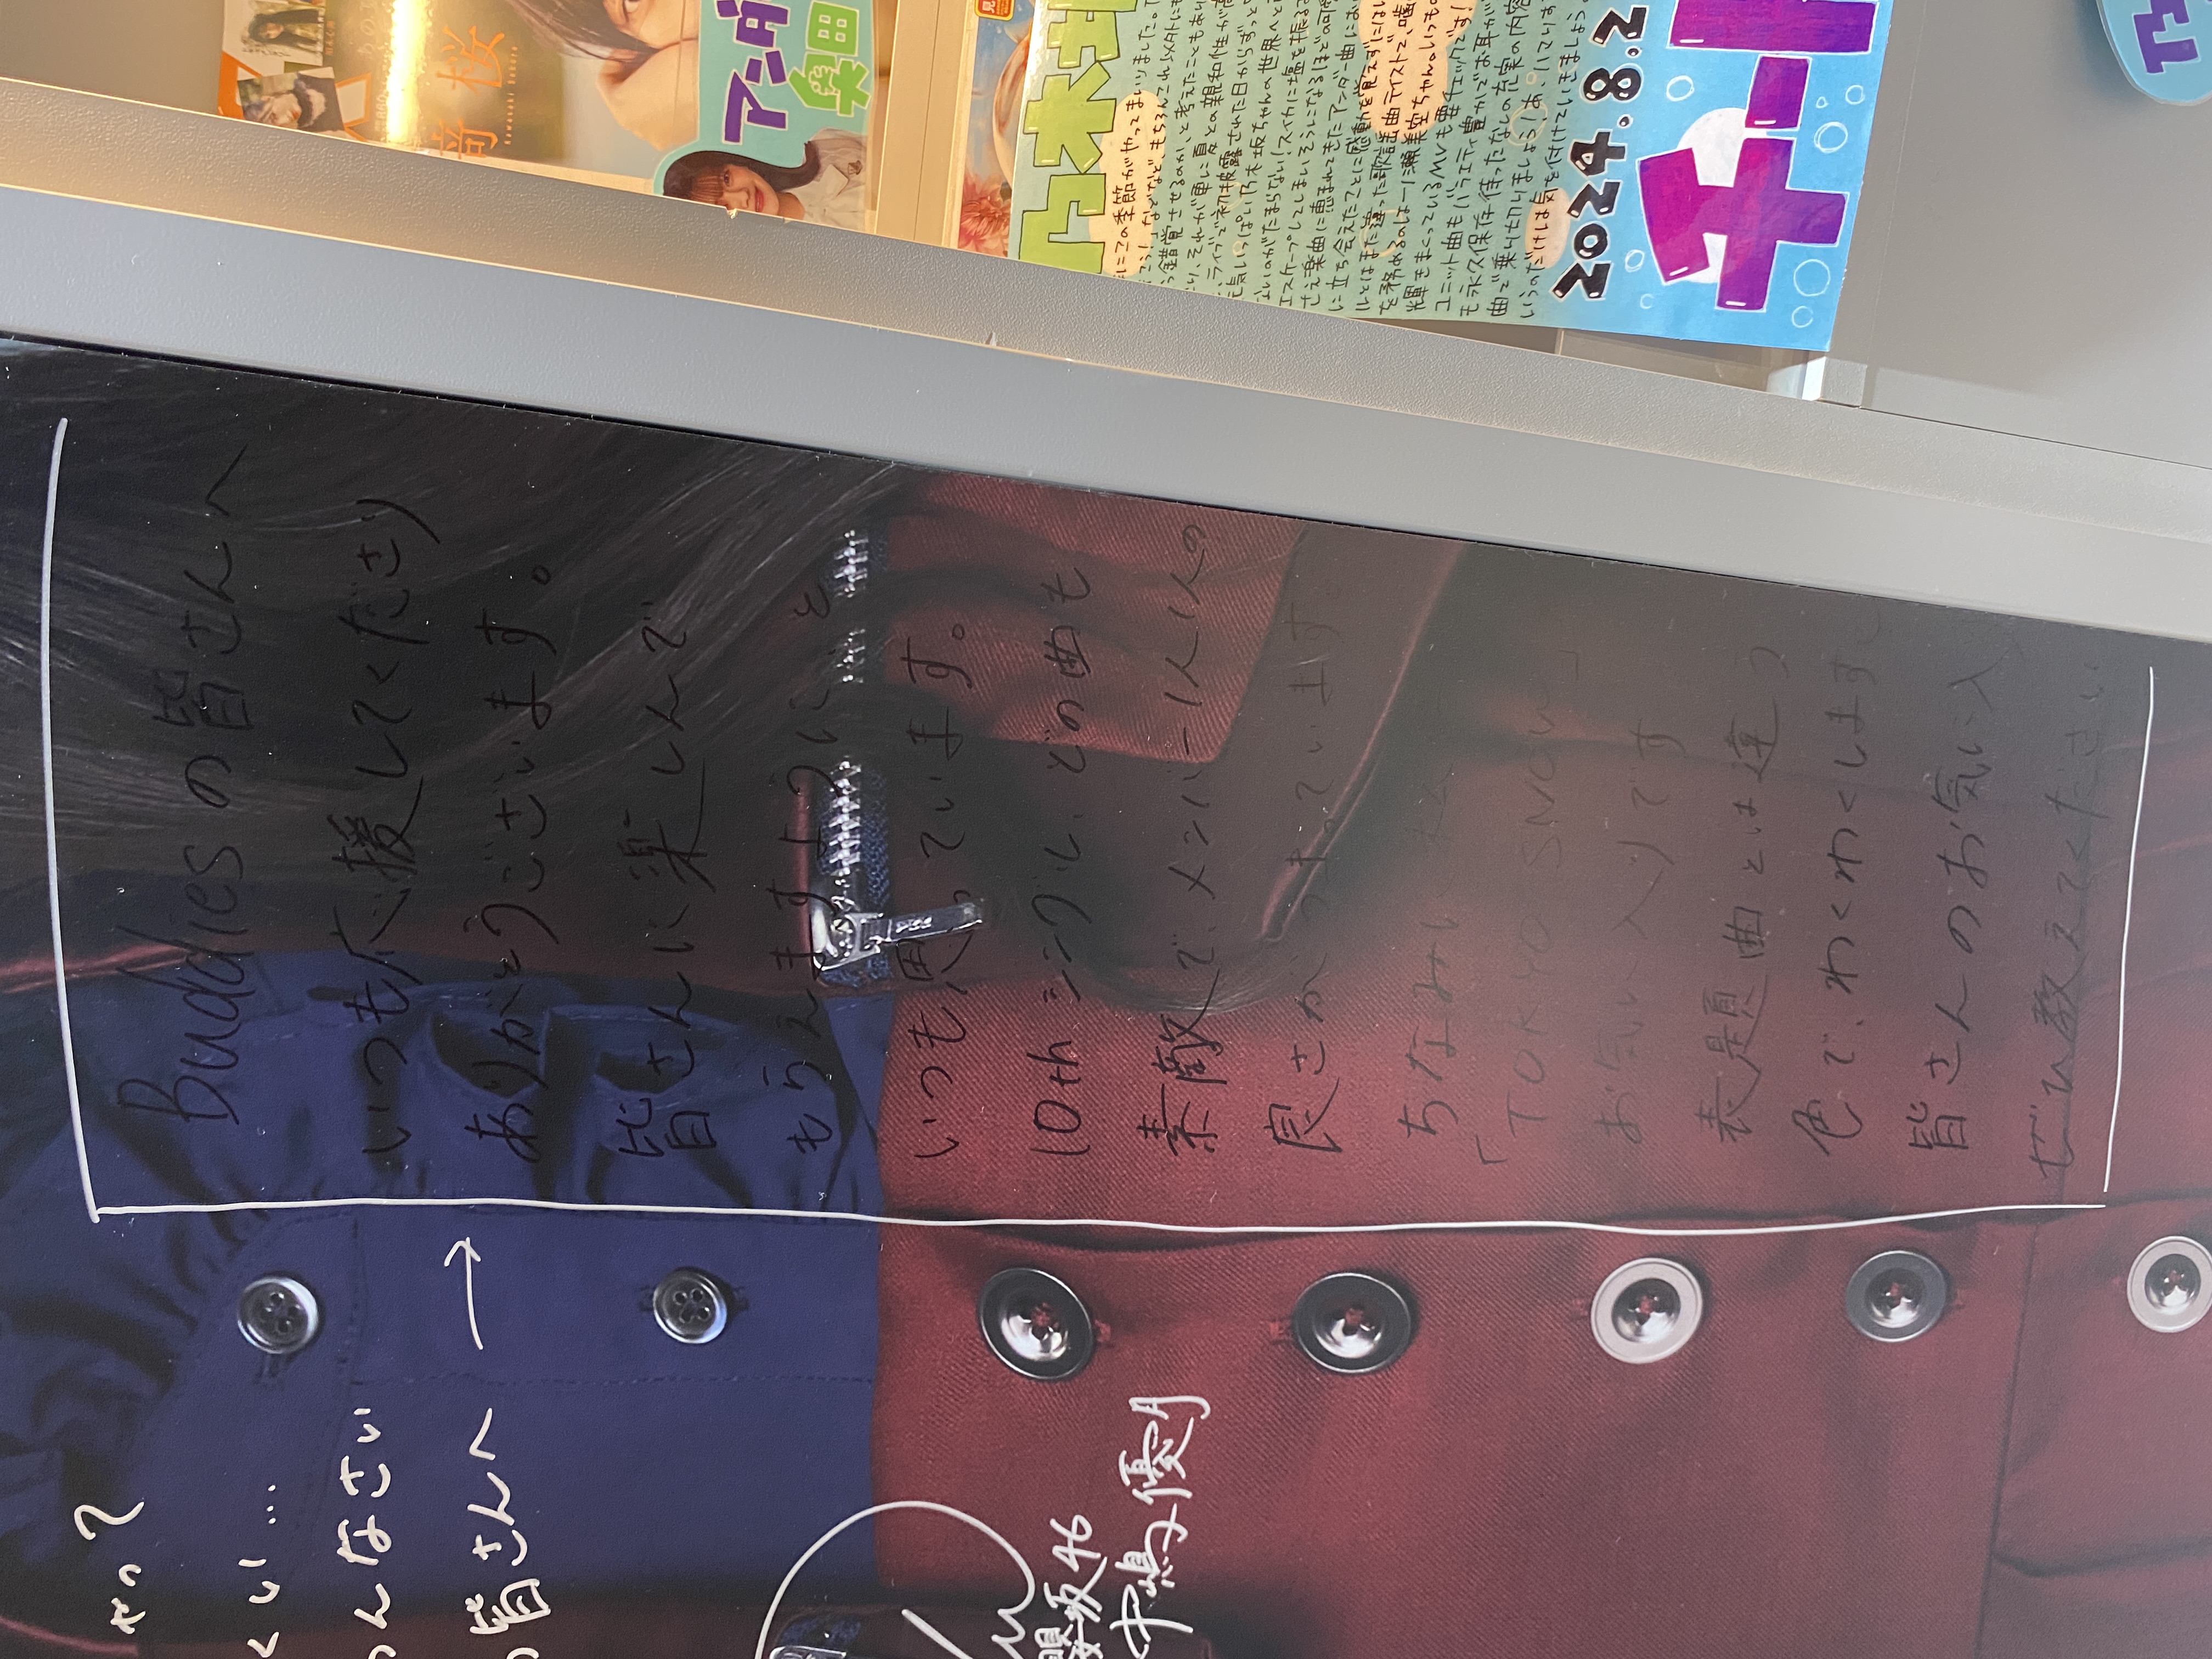 やって
くい…
んなさい
の皆さんへ →
櫻坂46
中嶋優月
Buddiesの皆さんへ
いつも応援してくださり
ありがとうございます。
皆さんに楽しんで
もらえますように、と
いつも思っています。
10thシングル、どの曲も
素敵で、メンバー1人1人の
良さがつまっています。
ちなみに
「TOKYO SNOW」
お気に入りです
表題曲とは違う
色で、わくわくします
皆さんのお気に入
ぜひ教えてください
桜
Kawasaki Sakura
アンダ
奥田
乃木坂
にこの季節がやってまいりました。
こう!」などなど、もちろんこれ以外にも
錯覚させるのか、と考えたこともあり
り、それが単に夏との親和性が高
、ライブで初披露された日からずっと
元気いっぱい乃木坂ちゃんの世界へと
ないのがたまらない!スイカに塩を振る
エスケープしてしまいそうになるほどの可愛
さえ楽曲に恵まれてきたアンダー曲にお
に立ち会えたことに感動を覚えずにはい
ルとはまた違った歌謡曲テイストで、噛
を務めるのは一ノ瀬美空ちゃん。いつもの
輝きまくっているMVも要チェックです!
ユニット曲もバラエティ豊かでお耳が
も永久保存待ったなしの充実の内容
曲で乗り切りましょう!あ、ハマりす
いうのだけは気を付けていきましょう
2024.8.2
チー
乃